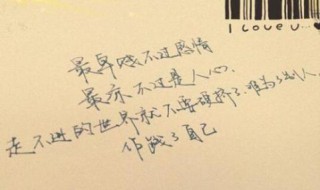 I Love u...
最卑贱不过感情
最凉不过是人心.
走不进的世界就不要硬挤了.难为了别人,
作践了自己